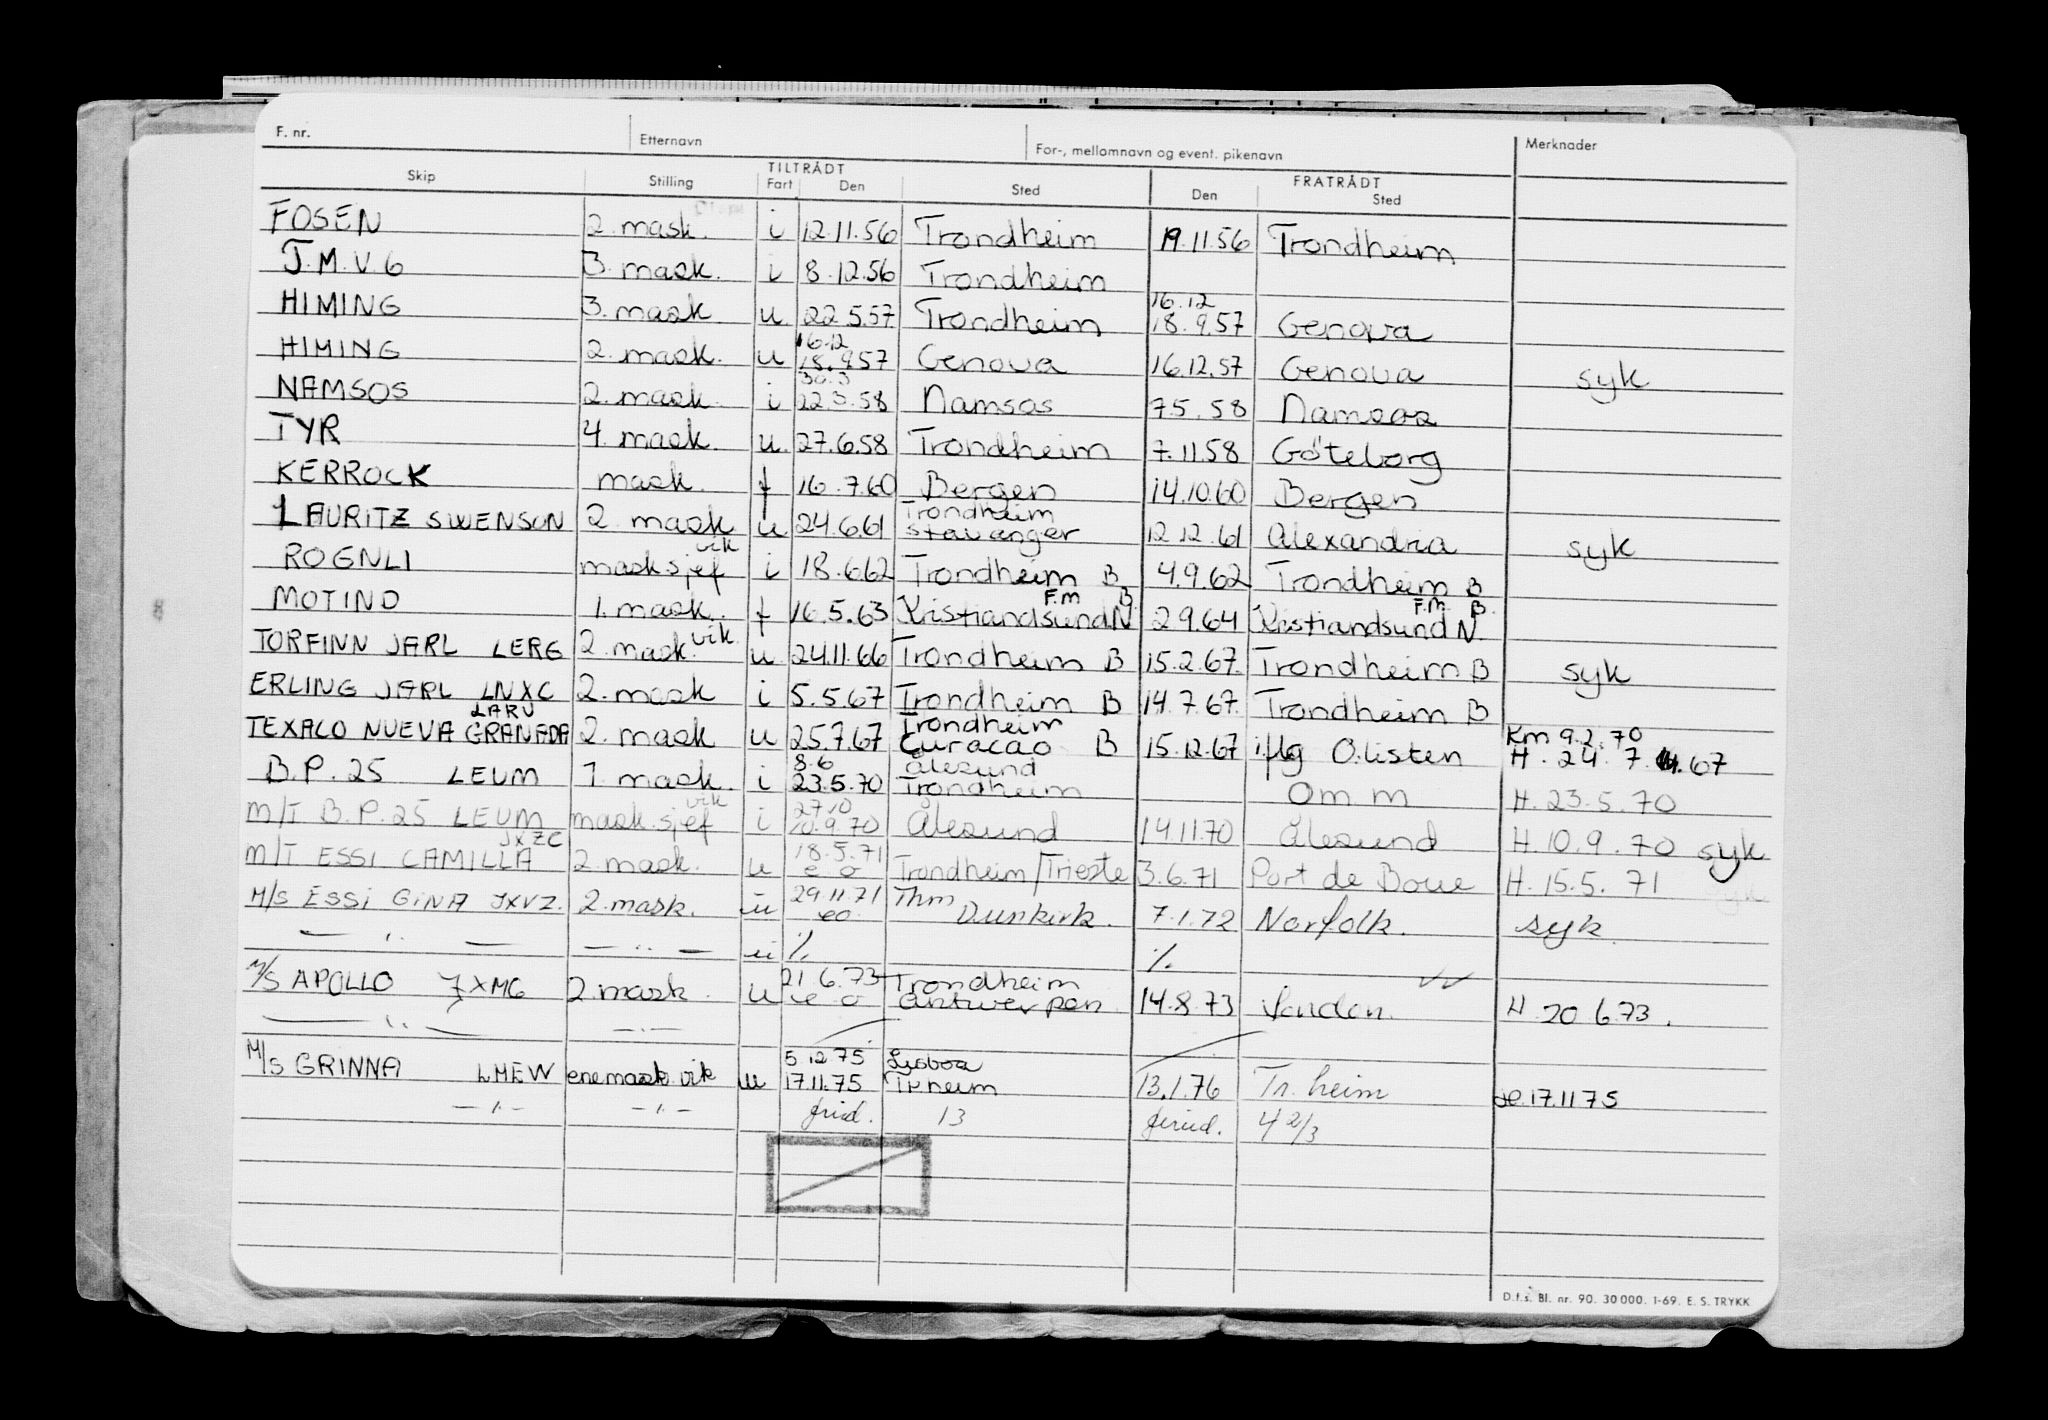 F. nr. Etternavn For-, mellomnavn og event. pikenavn Merknader
TILTRÅDT FRATRÅDT
Skip Stilling Fart Den Sted Den Sted
FOSEN 2. mask. i 12.11.56 Trondheim 19.11.56 Trondheim
J.M.V.6 3. mask. i 8.12.56 Trondheim
16.12
HIMING 3. mask u 22.5.57 Trondheim 18.9.57 Genova
16.12
HIMING 2. mask. u 18.9.57 Genova 16.12.57 Genova syk
30.3
NAMSOS 2. mask. i 22.3.58 Namsos 7.5.58 Namsos
TYR 4. mask. u. 27.6.58 Trondheim 7.11.58 Göteborg
KERROCK mask. f 16.7.60 Bergen 14.10.60 Bergen
Trondheim
LAURITZ SWENSON 2. mask u 24.6.61 Stavanger 12.12.61 Alexandria syk
vik
ROGNLI masksjef i 18.6.62 Trondheim B 4.9.62 Trondheim B
F.m B. F.M. B.
MOTIND 1. mask. f 16.5.63 Kristiandsund N 2.9.64 Kristiandsund N
vik
TORFINN JARL LERG 2. mask. u 24.11.66 Trondheim B 15.2.67. Trondheim B syk
ERLING JARL LNXC 2. mask i 5.5.67 Trondheim B 14.7.67. Trondheim B
LARV Trondheim Km 9.2.70
TEXACO NUEVA GRANADA 2. mask u 25.7.67 Curacao B 15.12.67 iflg O.listen H. 24.7. 67
8.6 Ålesund
B.P. 25 LEUM 1. mask. i 23.5.70 Trondheim Om m H. 23.5.70
vik 27.10
M/T B.P. 25 LEUM mask.sjef i 10.9.70 Ålesund 14.11.70 Ålesund H. 10.9.70 syk
JXZC 18.5.71
M/T ESSI CAMILLA 2. mask. u e o Trondheim/Trieste 3.6.71 Port de Boue H. 15.5.71
29.11.71 Thm
M/S ESSI GINA JXVZ. 2. mask. u eo Dunkirk. 7.1.72 Norfolk. syk
— ". — — ". — u %. %.
21.6.73 Trondheim
M/S APOLLO JXMG 2. mask. u e o Antwerpen 14.8.73 London. H 20.6.73.
— ". — —.—
5.12.75 Lisboa
M/S GRINNA LMEW enemask. vik u 17.11.75 Tr heim 13.1.76 Tr. heim 17.11.75
— " — — " — 13 4 2/3
D.f.s. Bl. nr. 90. 30 000. 1-69. E. S. TRYKK